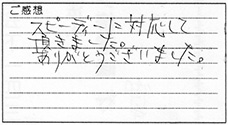 ご感想
スピーディーに対応して
頂きました。
ありがとうございました。